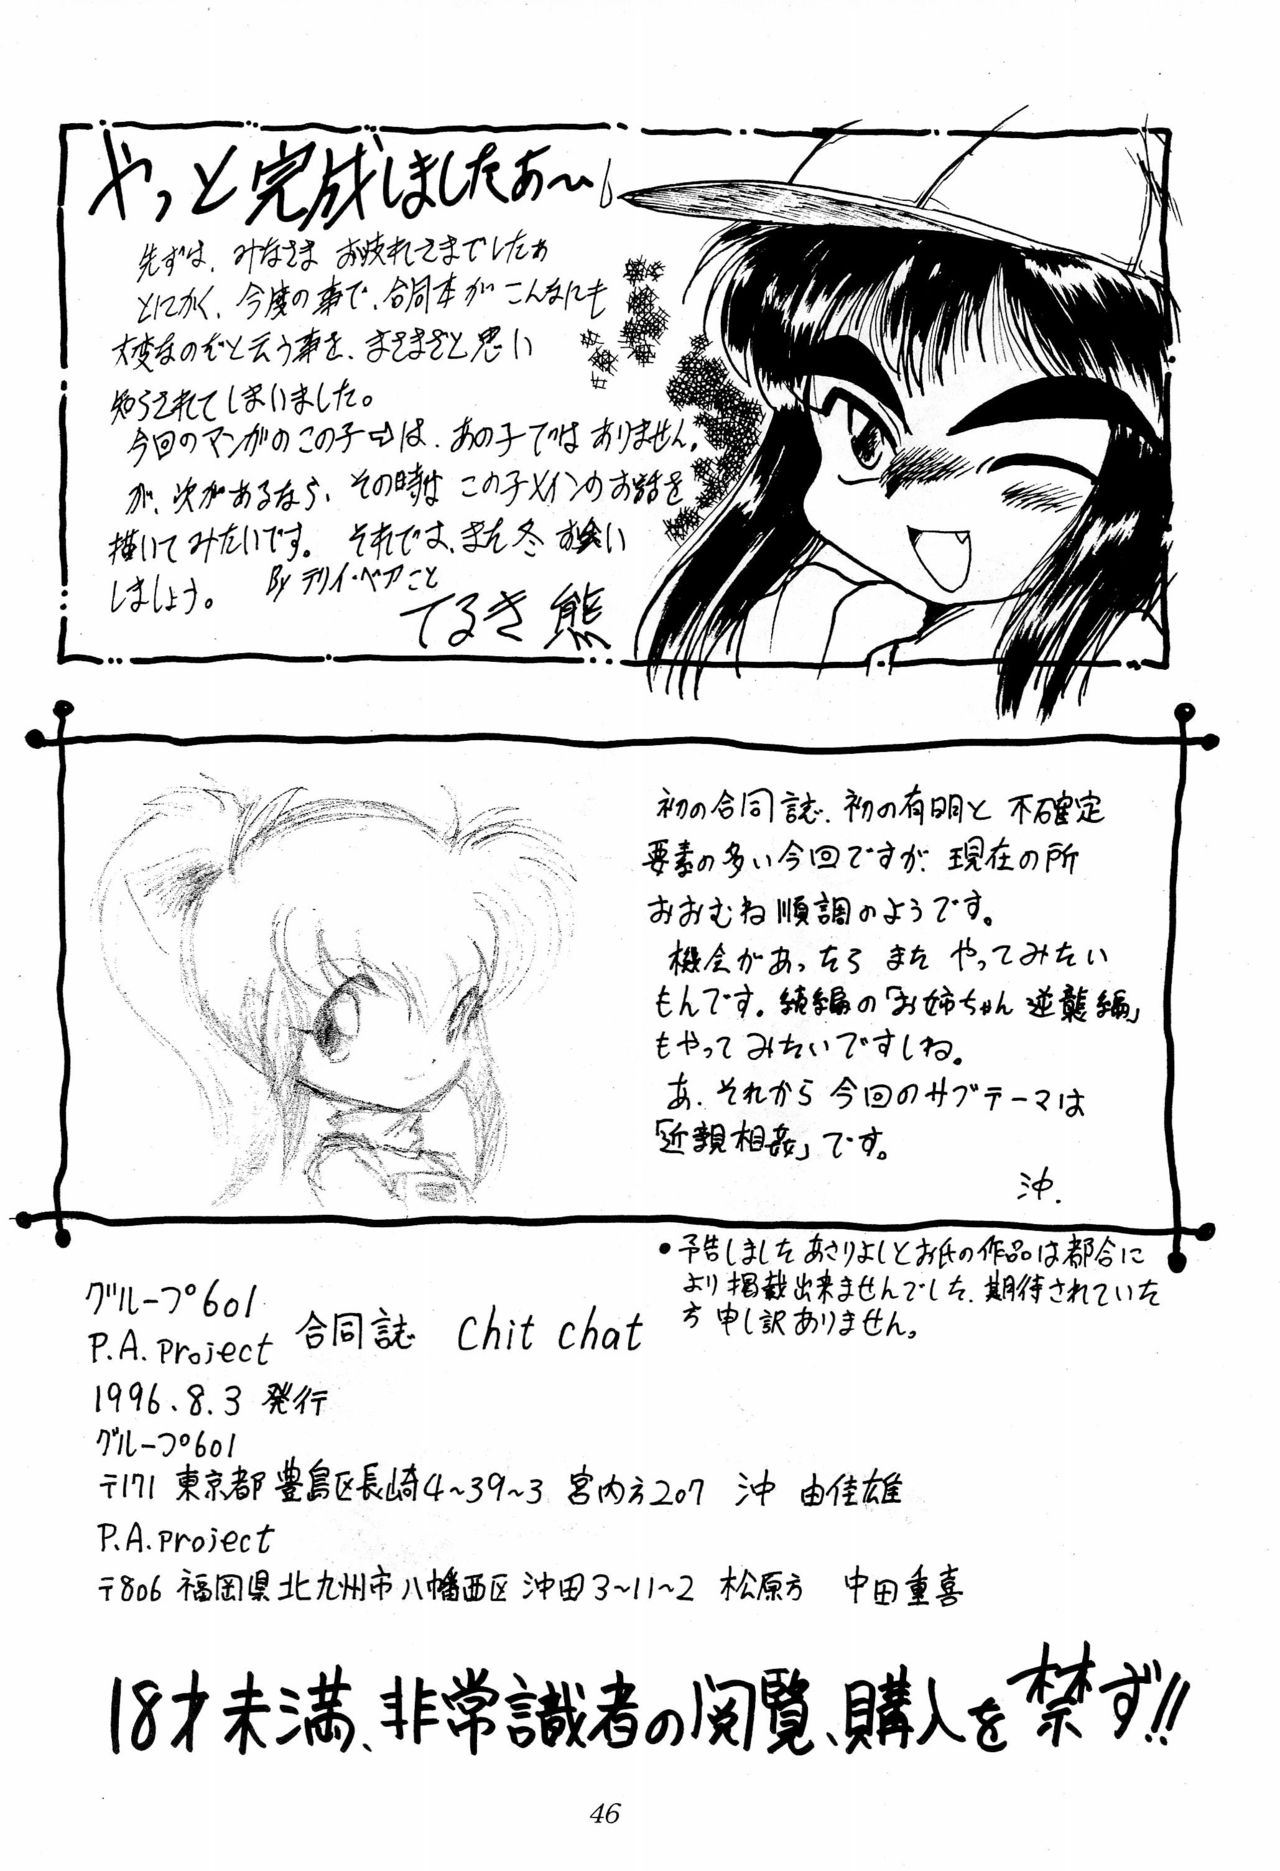 やっと完成しましたぁ〜
先ずは、みなさま お疲れさまでしたぁ
とにかく、今度の事で、合同本がこんなにも
大変なのだと云う事を、まざまざと思い
知らされてしまいました。
今回のマンガのこの子⇨は、あの子ではありません。
が、次があるなら、その時は この子メインのお話を
描いてみたいです。 それでは、また冬 お会い
しましょう。 By テリィ・ベアこと
てるき熊
初の合同誌、初の有明と 不確定
要素の多い今回ですが、現在の所
おおむね順調のようです。
機会があったら また やってみたい
もんです。続編の「お姉ちゃん 逆襲編」
もやってみたいですしね。
あ、それから 今回のサブテーマは
「近親相姦」です。
沖.
●予告しました あさりよしとお氏の作品は都合に
より掲載出来ませんでした、期待されていた
方 申し訳ありません。
グループ601
P.A.Project 合同誌 Chit chat
1996.8.3 発行
グループ601
〒171 東京都 豊島区長崎4〜39〜3 宮内方207 沖 由佳雄
P.A.Project
〒806 福岡県北九州市八幡西区 沖田3〜11〜2 松原方 中田重喜
18才未満、非常識者の閲覧、購入を禁ず!!
46